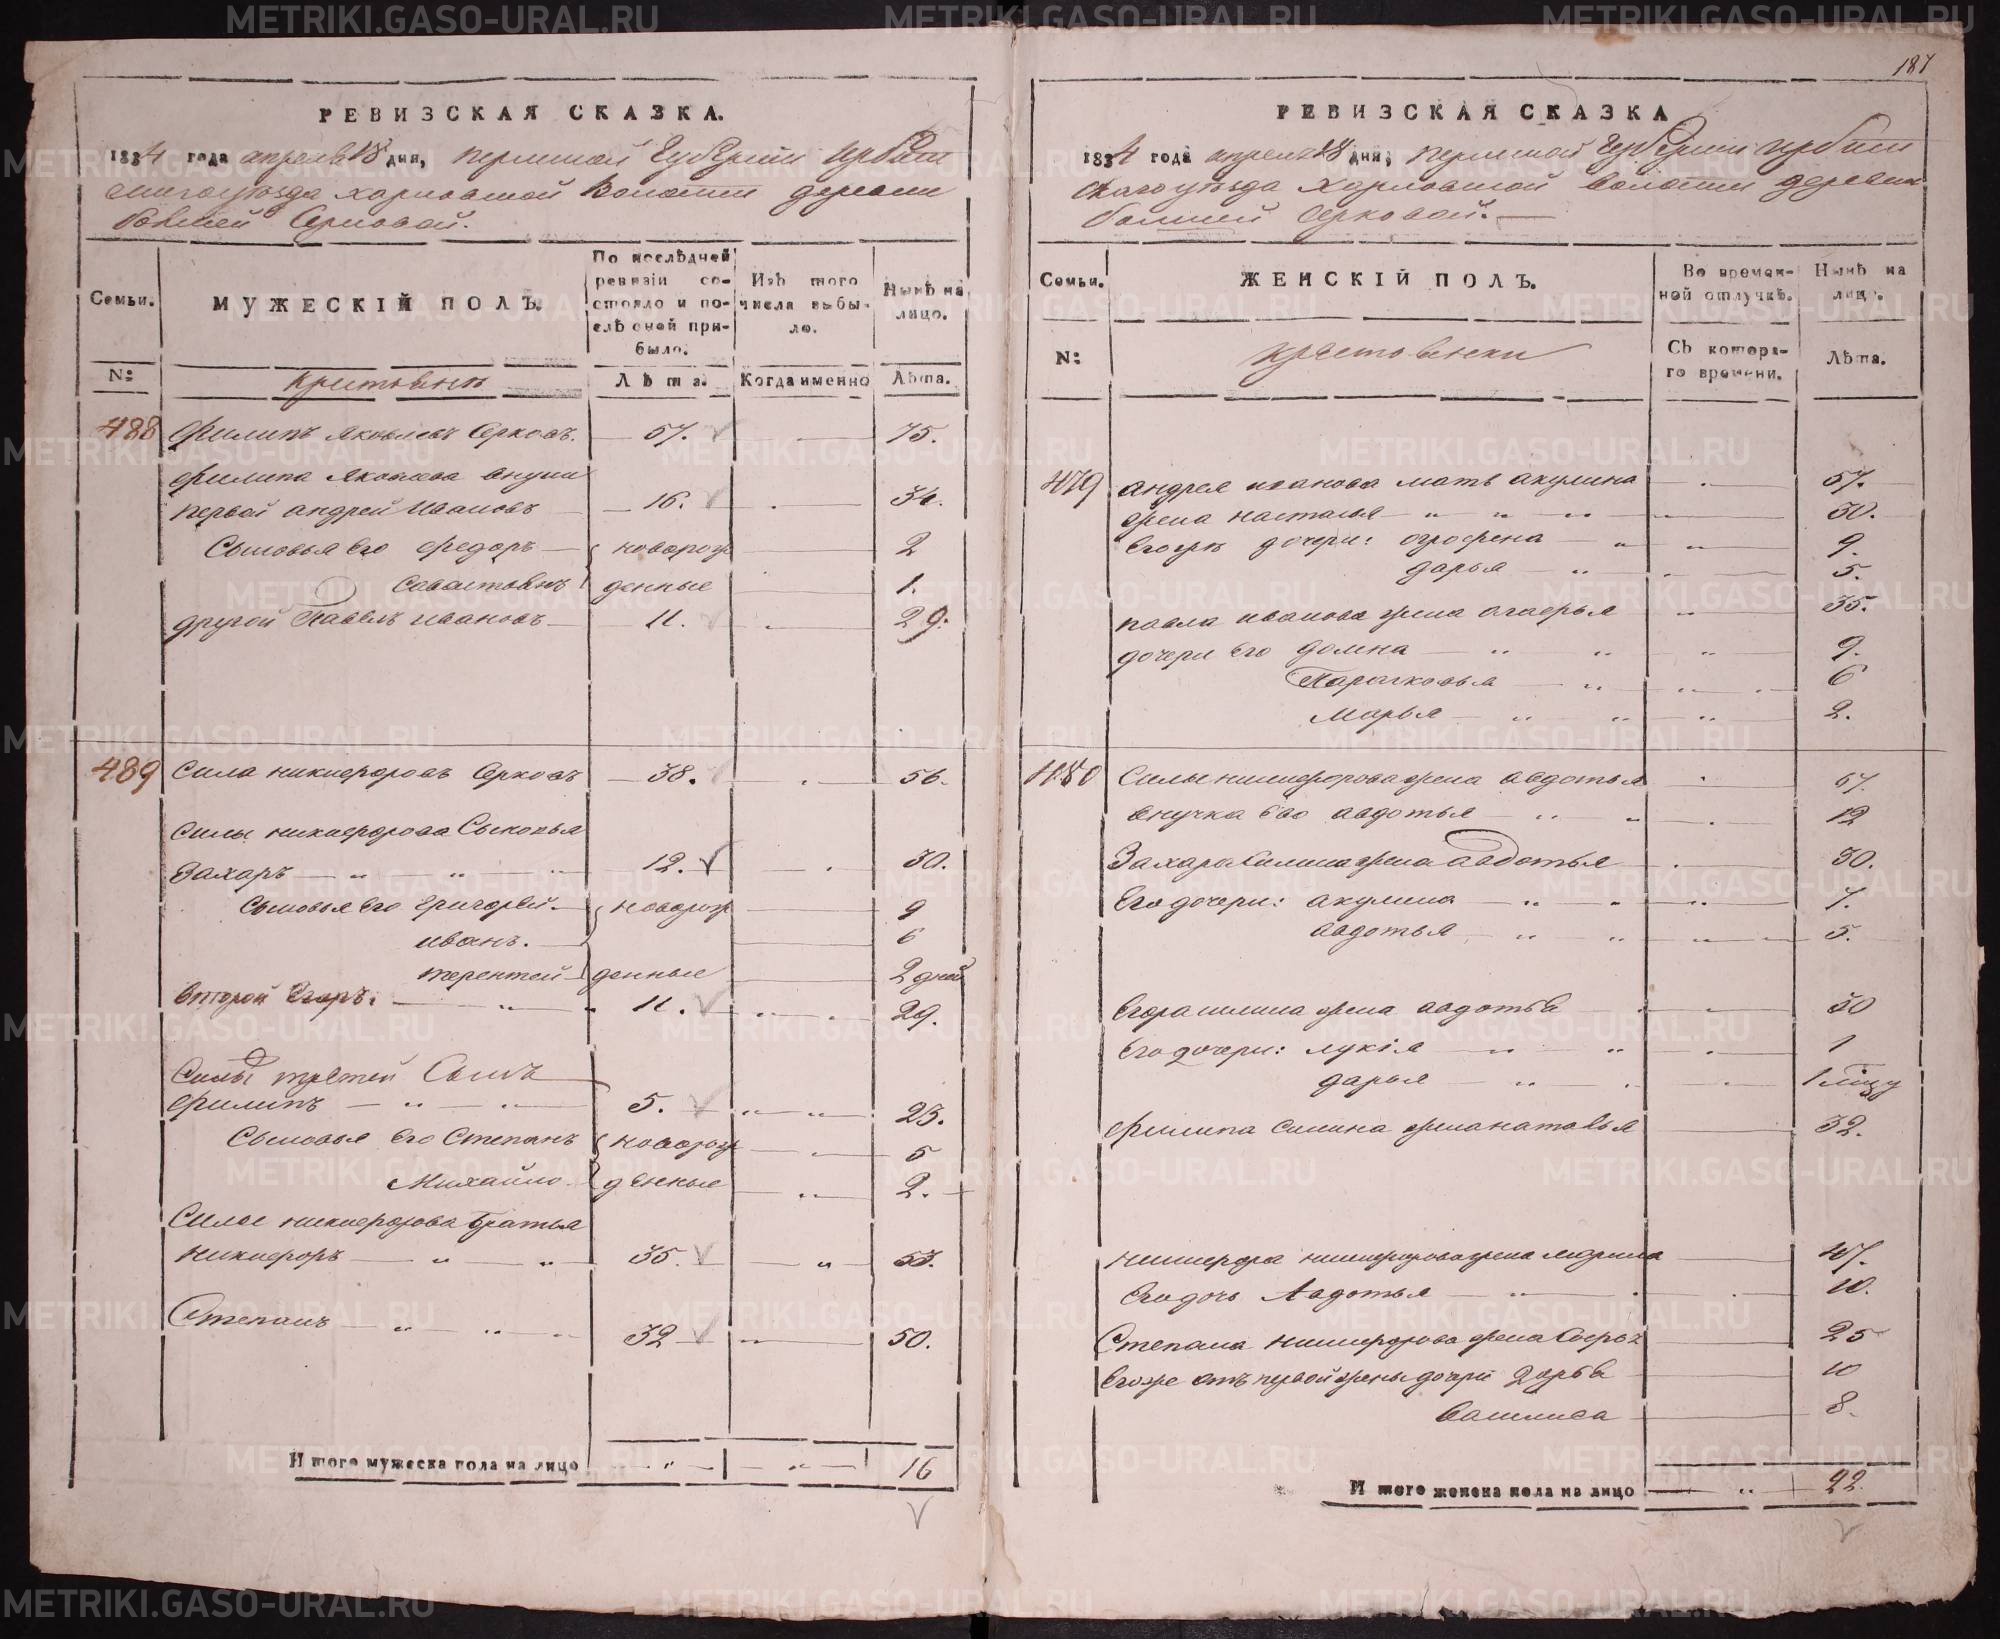 РЕВИЗСКАЯ СКАЗКА.
1834 года апреля 18 дня, пермской Губернии ирбит
скаго уезда харловской волости деревни
большей Серковой.
Семьи.
МУЖЕСКІЙ ПОЛЪ.
По послѣдней ревизіи состояло и послѣ оной прибыло.
Изъ того числа выбыло.
Нынѣ на лицо.
№:
крестьянъ
Лѣта.
Когда именно
Лѣта.
488 Филипъ Яковлевъ Серковъ. 57. 75.
Филипа Яковлева внуки
первой андрей Ивановъ 16. 34.
Сыновья Его федоръ новорож 2
Савастьянъ денные 1.
другой Павелъ ивановъ 11. 29.
489 Сила никифоровъ Серковъ 38. 56.
Силы никифорова Сыновья
Захаръ 12. 30.
Сыновья Его григорей. новорож 9
иванъ. 6
терентей денные 2 дней
второй Егоръ. 11. 29.
Силы третей Сынъ
филипъ 5. 23.
Сыновья Его Степанъ новорож 5
Михайло денные 2.
Силы никифорова братья
никифоръ 35. 53.
Степанъ 32 50.
Итого мужеска пола на лицо 16
187
РЕВИЗСКАЯ СКАЗКА
1834 года апреля 18 дня, пермской Губернии ирбит
скаго уезда харловской волости деревни
большей Серковой.
Семьи.
ЖЕНСКІЙ ПОЛЪ.
Во временной отлучкѣ.
Нынѣ на лицо.
№:
крестьянки
Съ котораго времени.
Лѣта.
479 андрея иванова мать акулина 57.
жена настасья 30.
Егожъ дочери: огрофена 9.
дарья 5.
павла иванова жена агафья 35.
дочери Его домна 9.
Парасковья 6
марья 2.
480 Силы никифорова жена авдотья 57.
внучка Его авдотья 12
Захара Силина жена авдотья 30.
Его дочери: акулина 7.
авдотья 5.
Егора силина жена авдотья 30
Его дочери: лукія 1
дарья 1
филипа Силина жена наталья 32.
никифора никифорова жена 47.
Его дочь Авдотья 10.
Степана никифорова жена 25
Егоже отъ первой жены дочери дарья 10
Василиса 8.
Итого женска пола на лицо 22.
METRIKI.GASO-URAL.RU